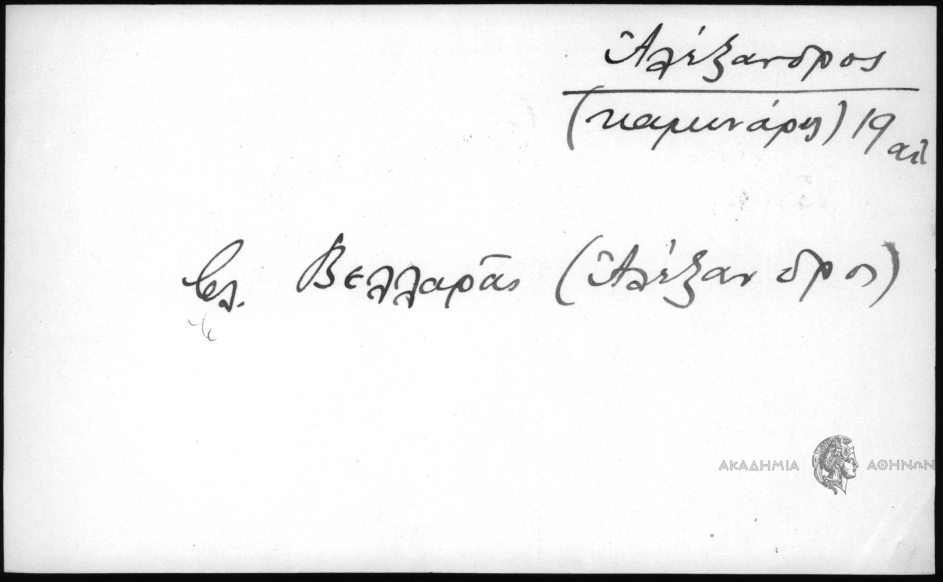 Ἀλέξανδρος
(καμινάρης) 19 αἰ
βλ. Βελλαρᾶς (Ἀλέξανδρος)
ΑΚΑΔΗΜΙΑ ΑΘΗΝΩΝ